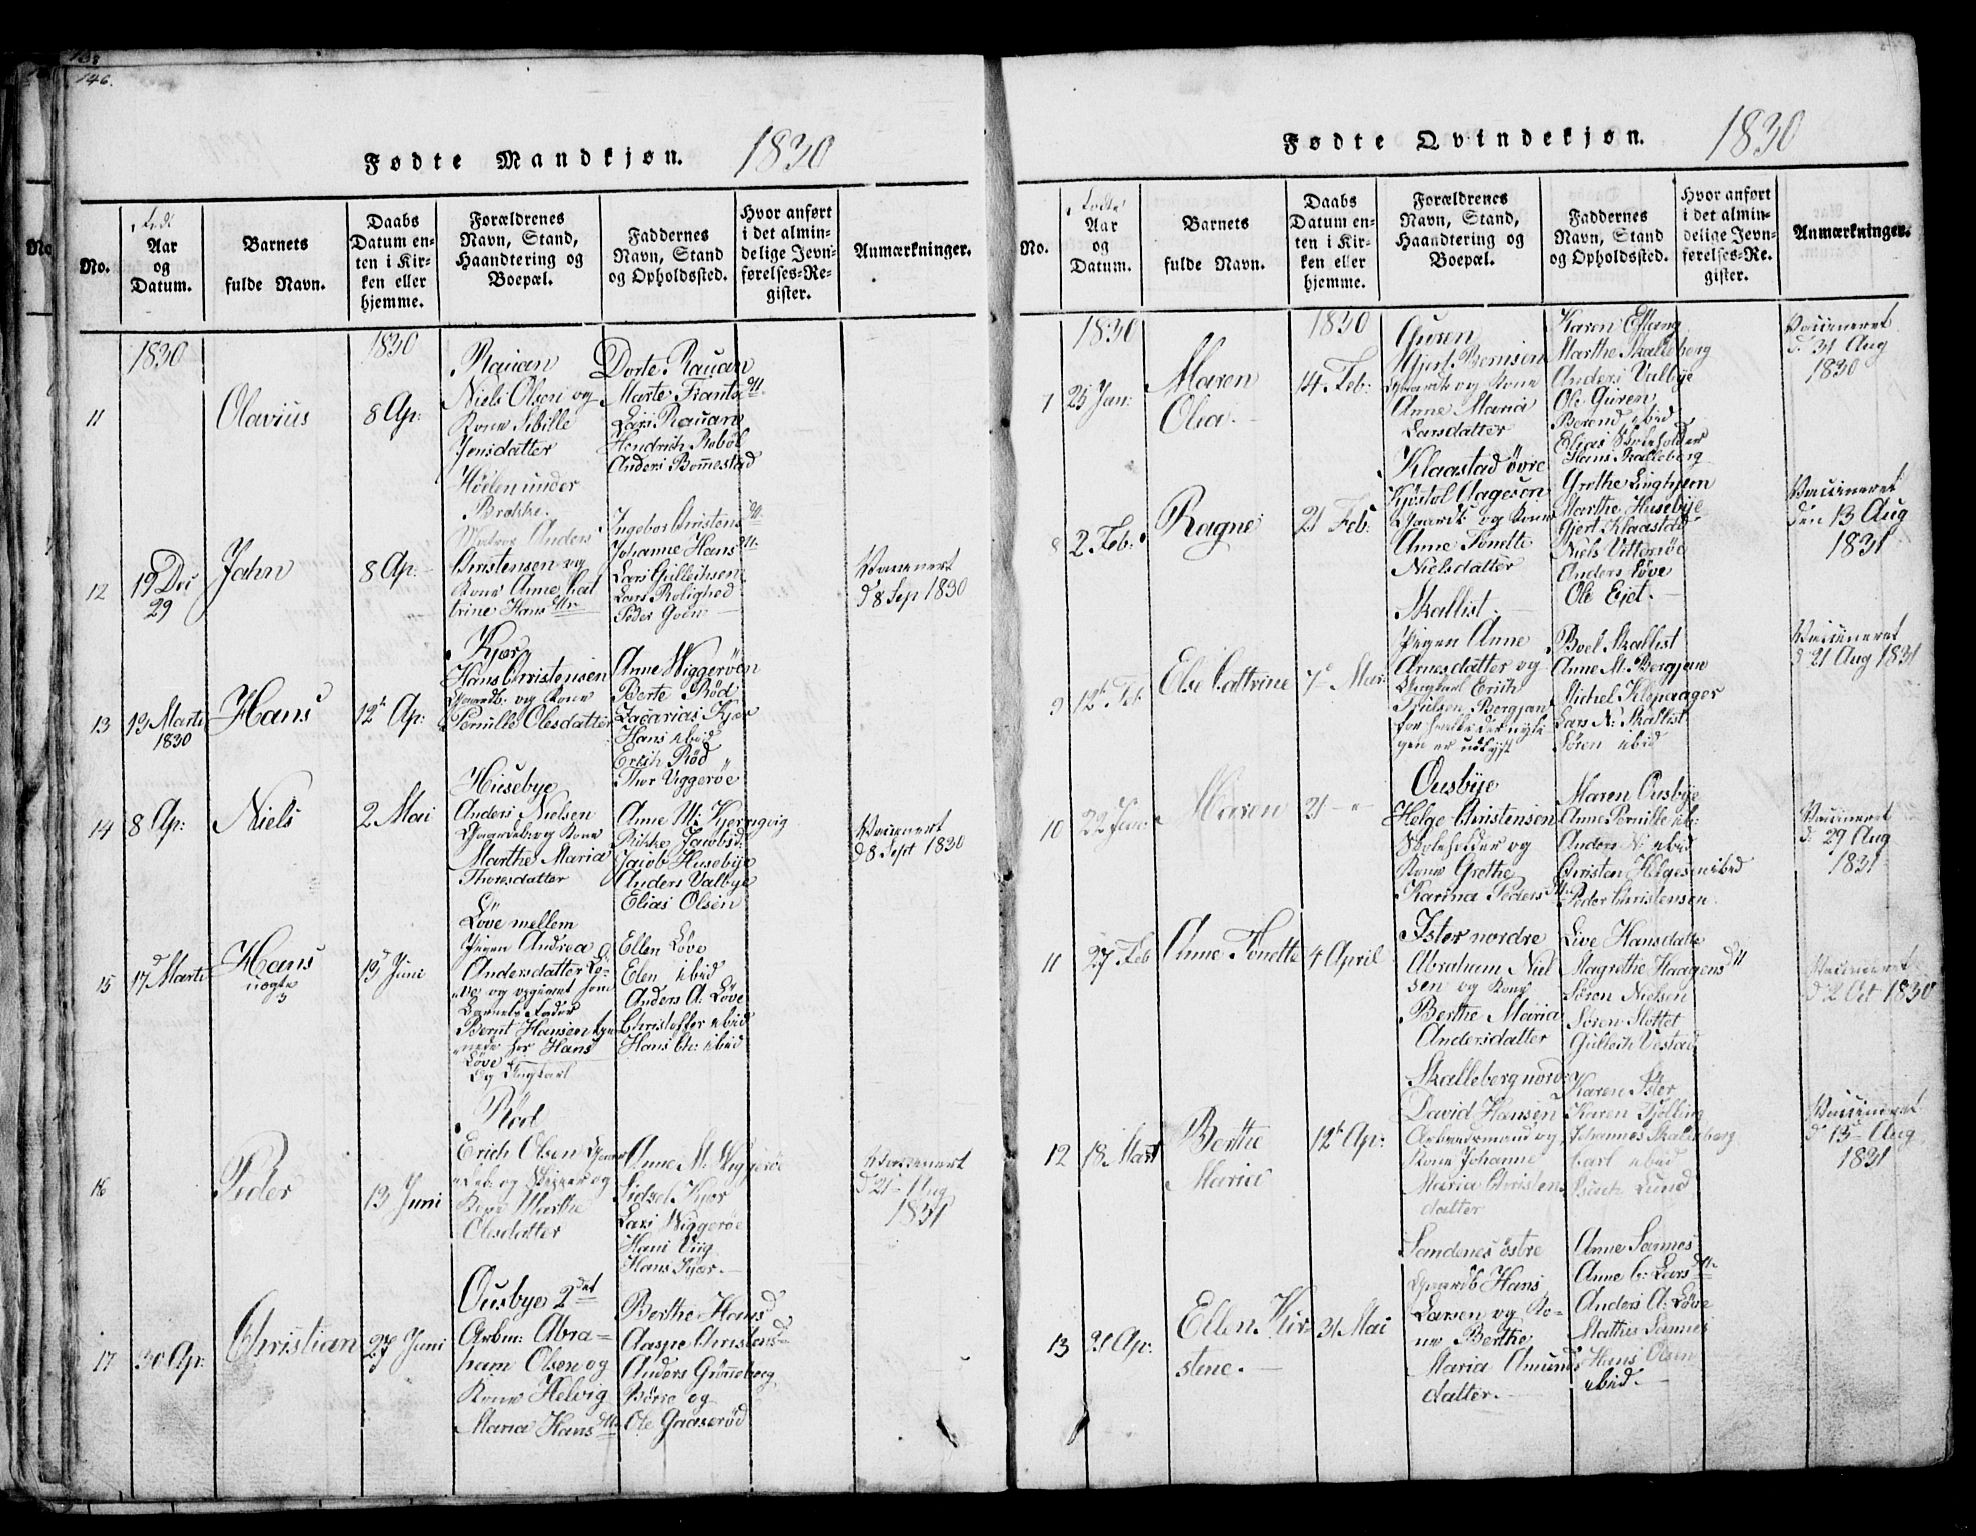 146.
Fødte Mandkjøn. 1830
No.
Aar
og
Datum.
Barnets
fulde Navn.
Daabs
Datum en-
ten i Kir-
ken eller
hjemme.
Forældrenes
Navn, Stand,
Haandtering og
Boepæl.
Faddernes
Navn, Stand
og Opholdssted.
Hvor anført
i det almin-
delige Jevn-
førelses-Re-
gister.
Anmærkninger.
1830
1830
11
Olavius
8 Ap:
Rauan
Niels Olsen og
Kone Sibille
Jensdatter
Dorte Rauan
Marte Frants
Lars Rauan
Hendrich Rebøl
Anders Bommestad
12
19 Dec
29
Jahn
8 Ap:
Høelen under
Brekke.
Anders
Christensen og
Kone Anne Cat
trine Hans
Ingebor Christens
Johanne Hans
Lars Gullichsen
Lars Rolighed
Peder Goen
d 8 Sep 1830
13
19 Marti
1830
Hans
12 Ap:
Kjær
Hans Christensen
Gaardb: og Kone
Pernille Olesdatter
Anne Wiggerøen
Berte Rød
Zacarias Kjær
Hans ibid
Erich Rød
Thor Viggerøe
14
8 Ap:
Niels
2 Mai
Husebye
Anders Nielsen
Gaardeb og Kone
Marthe Maria
Thoresdatter
Anne M: Kjerringvig
Rikke Jacobsd:
Jacob Husebye
Anders Valbye
Elias Olsen
d 8 Sept 1830
15
17 Marti
Hans
uægte
19 Juni
Løve mellem
Pigen Andrea
Andersdatter Lö-
Barnets Fader
Bernt Hansen
Hans
Løve
Og Ungkarl
Ellen Løve
Elen ibid
Anders A: Løve
Christoffer ibid
Hans Ch: ibid
16
Peder
13 Juni
Rød
Erich Olsen
og
Kone Marthe
Olesdatter
Anne M: Wiggerøe
Sidsel Kjær
Lars Wiggerøe
Hans Viig
Hans Kjær.
d 21 Aug
1831
17
30 Ap:
Christian
27 Juni
Ousbye 2det
Arbm: Abra-
ham Olsen og
Kone Helvig
Maria Hans
Berthe Hans
Aaspe Christens
Anders Grønneberg
Børre og
Ole Gaaserød
Fødte Qvindekjøn. 1830
No.
Aar
og
Datum.
Barnets
fulde Navn.
Daabs
Datum en-
ten i Kir-
ken eller
hjemme.
Forældrenes
Navn, Stand,
Haandtering og
Boepæl.
Faddernes
Navn, Stand
og Opholdssted.
Hvor anført
i det almin-
delige Jevn-
førelses-Re-
gister.
Anmærkninger.
1830
1830
7
25 Jan:
Maren
Olea.
14 Feb:
Guren
Hjert Berntsen
Gaardb og Kone
Anne Maria
Larsdatter
Karen Eftang
Marthe Skalleberg
Anders Valbye
Ole Guren
Berend ibid
Elias Skoleholder
Hans Skalleberg
Vaccineret
d. 31 Aug
1830
8
2 Feb:
Ragne
21 Feb:
Klaastad øvre
Kjøstol Aagesen
Gaardb og Kone
Anne Tonette
Nielsdatter
Grethe Linghjem
Marthe Husebye
Gjert Klaastad
Niels Vittersøe
Anders Løve
Ole Ejet.
Vaccineret
den 13 Aug
1831
9
12 Feb
Else Cattrine
7 Mar:
Skallist.
Pigen Anne
Arnesdatter og
Ungkarl Erich
Trulsen Bergjan
Boel Skallist
Anne M. Bergjan
Michel Klopaager
Lars N: Skallist
Søren ibid
Vaccineret
d 21 Aug 1831
10
Maren
21
Ousbye
Helge Christensen
Skoleholder og
Kone Grethe
Karina Peders
Maren Ousbye
Anne Pernille ib:
Anders N: ibid
Christen Helgesen ibid
Peder Christensen
Vaccineret
d: 29 Aug
1831
11
27 Feb
Anne Tonette
4 April
Ister nordre
Abraham Niel
sen og Kone
Berthe Maria
Andersdatter
Live Hansdatte
Magrethe Haagens
Søren Nielsen
Søren Slottet
Gullich Vestad
Vaccineret
d 2 Oct 1830
12
18 Mart
Berthe
Maria
12 Ap:
Skalleberg nord:
David Hansen
Arbeidsmand og
Kone Johanne
Maria Christens
datter
Karen Ister
Karen Tjølling
Johannes Skalleberg
Carl ibid
Lund
Vaccineret
d 13 Aug
1831
13
Ap:
Ellen Kir-
stene.
31 Mai
Sandenes østre
Gaardb Hans
Larsen og Ko-
ne Berthe
Maria Amunds
datter.
Anne Sannes
Anne C: Lars
Anders A: Løve
Mathis Sannes
Hans Olsen
ibid